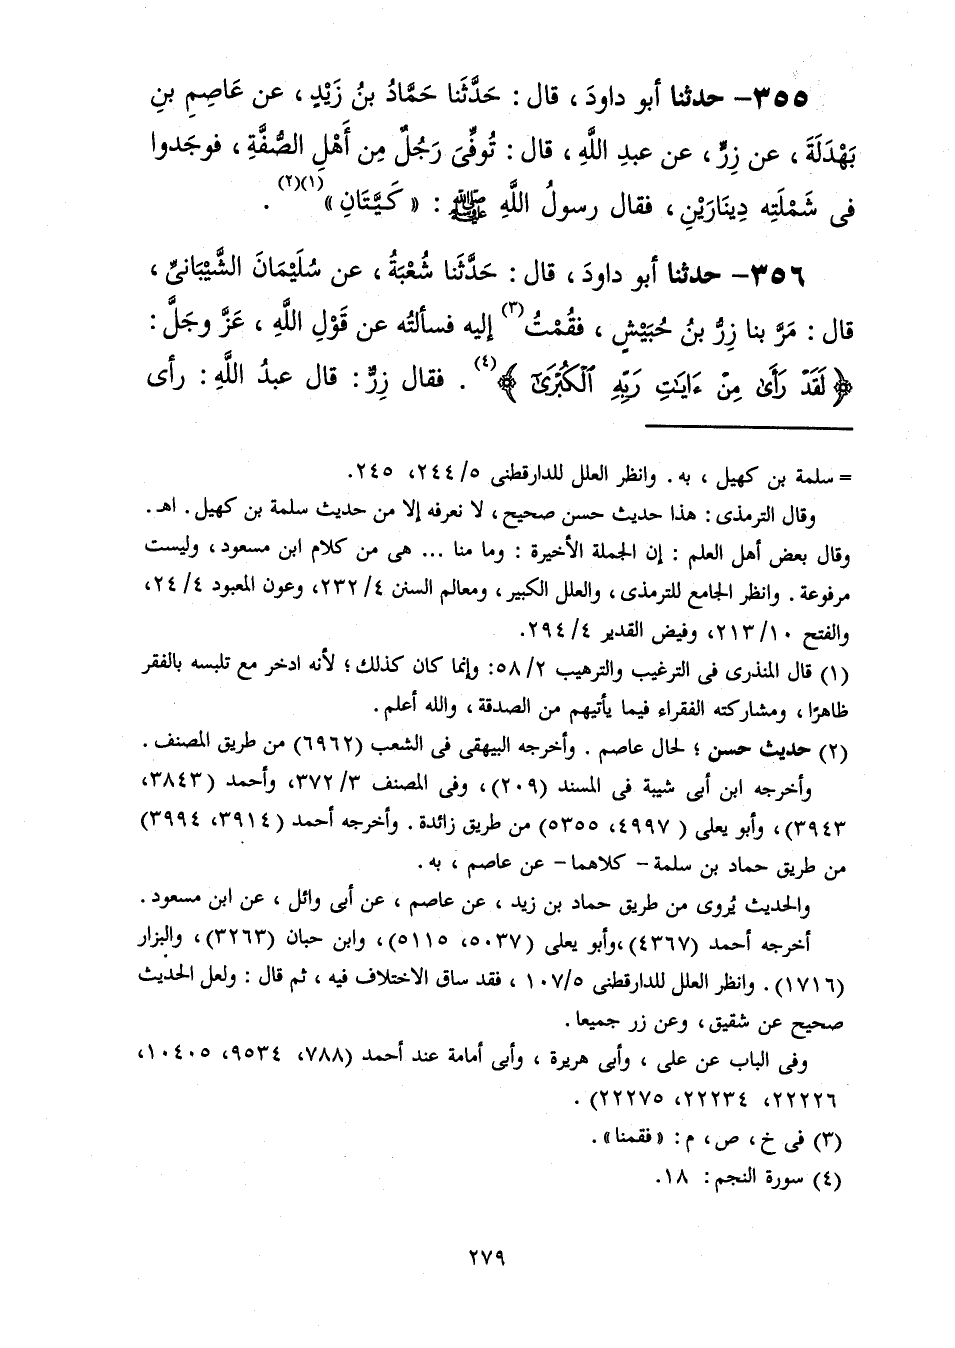 ٣٥٥- حدثنا أبو داودَ ، قال : حَدَّثَنا حَمَّادُ بنُ زَيْدٍ ، عن عَاصِمِ بنِ
بَهْدَلَةَ ، عن زِرٍّ ، عن عبدِ اللَّهِ ، قال : تُوفِّىَ رَجُلٌ مِن أَهْلِ الصُّفَّةِ ، فوجَدوا
فى شَمْلَتِه دِينَارَيْنِ ، فقال رسولُ اللَّهِ ﷺ : « كَيَّتَانِ »(١)(٢) .
٣٥٦- حدثنا أبو داودَ ، قال : حَدَّثَنا شُعْبَةُ ، عن سُلَيْمَانَ الشَّيْبَانىِّ ،
قال : مَرَّ بنا زِرُّ بنُ حُبَيْشٍ ، فقُمْتُ(٣) إليه فسألتُه عن قَوْلِ اللَّهِ ، عَزَّ وجَلَّ :
﴿ لَقَدْ رَأَىٰ مِنْ ءَايَـٰتِ رَبِّهِ ٱلْكُبْرَىٰٓ ﴾(٤) . فقال زِرٌّ : قال عبدُ اللَّهِ : رأى
= سلمة بن كهيل ، به . وانظر العلل للدارقطنى ٥/ ٢٤٤، ٢٤٥.
وقال الترمذى : هذا حديث حسن صحيح ، لا نعرفه إلا من حديث سلمة بن كهيل . اهـ .
وقال بعض أهل العلم : إن الجملة الأخيرة : وما منا ... هى من كلام ابن مسعود ، وليست
مرفوعة . وانظر الجامع للترمذى ، والعلل الكبير ، ومعالم السنن ٤/ ٢٣٢، وعون المعبود ٤/ ٢٤،
والفتح ١٠/ ٢١٣، وفيض القدير ٤/ ٢٩٤.
(١) قال المنذرى فى الترغيب والترهيب ٢/ ٥٨: وإنما كان كذلك ؛ لأنه ادخر مع تلبسه بالفقر
ظاهرًا ، ومشاركته الفقراء فيما يأتيهم من الصدقة ، والله أعلم .
(٢) حديث حسن ؛ لحال عاصم . وأخرجه البيهقى فى الشعب (٦٩٦٢) من طريق المصنف .
وأخرجه ابن أبى شيبة فى المسند (٢٠٩)، وفى المصنف ٣/ ٣٧٢، وأحمد (٣٨٤٣،
٣٩٤٣)، وأبو يعلى ( ٤٩٩٧، ٥٣٥٥) من طريق زائدة . وأخرجه أحمد (٣٩١٤، ٣٩٩٤)
من طريق حماد بن سلمة - كلاهما - عن عاصم ، به .
والحديث يُروى من طريق حماد بن زيد ، عن عاصم ، عن أبى وائل ، عن ابن مسعود .
أخرجه أحمد (٤٣٦٧)،وأبو يعلى (٥٠٣٧، ٥١١٥)، وابن حبان (٣٢٦٣)، والبزار
(١٧١٦) . وانظر العلل للدارقطنى ١٠٧/٥ ، فقد ساق الاختلاف فيه ، ثم قال : ولعل الحديث
صحيح عن شقيق ، وعن زر جميعا .
وفى الباب عن على ، وأبى هريرة ، وأبى أمامة عند أحمد (٧٨٨، ٩٥٣٤، ١٠٤٠٥،
٢٢٢٢٦، ٢٢٢٣٤، ٢٢٢٧٥) .
(٣) فى خ ، ص ، م : « فقمنا » .
(٤) سورة النجم : ١٨.
٢٧٩